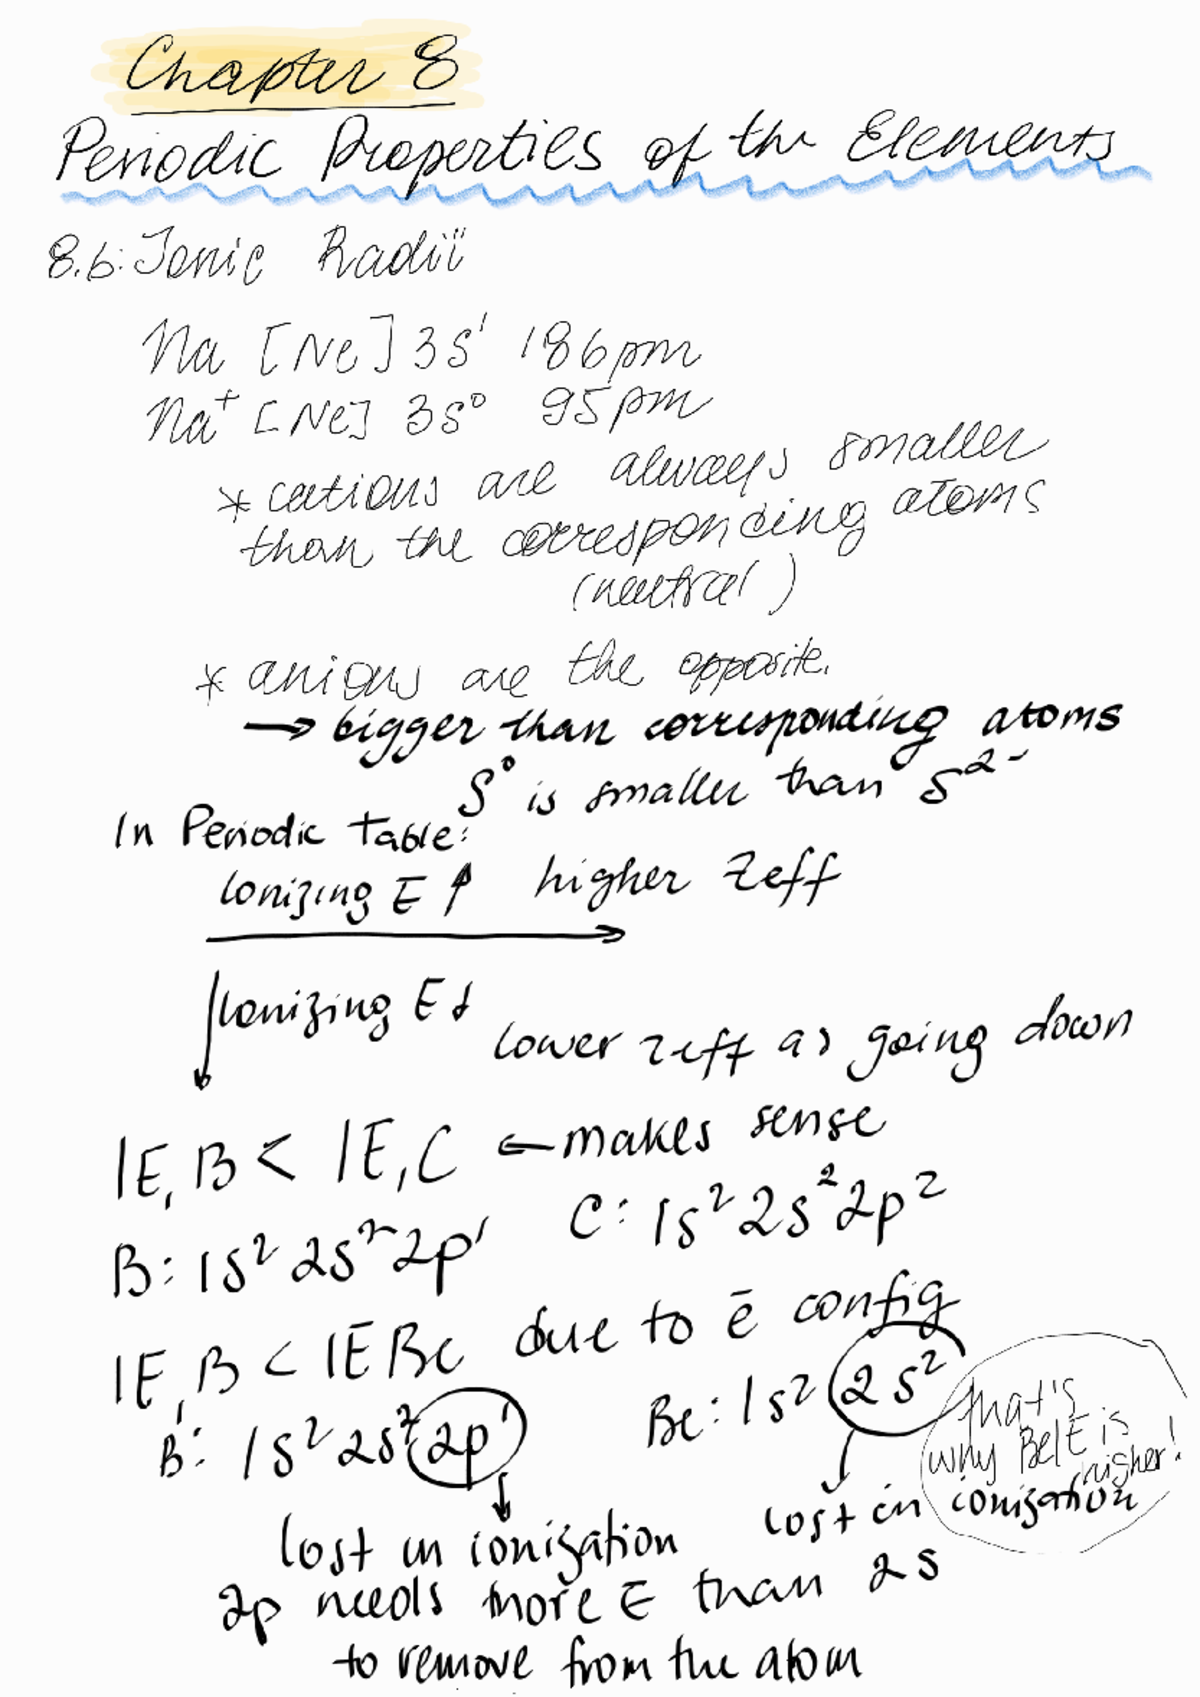 Chapter 8
Periodic Properties of the Elements
8.6: Ionic Radii
Na [Ne] 3s¹ 186pm
Na⁺ [Ne] 3s⁰ 95pm
* cations are always smaller
than the corresponding atoms
(neutral)
* anions are the opposite.
→ bigger than corresponding atoms
S⁰ is smaller than S²⁻
In Periodic Table:
Ionizing E ↑ higher Zeff
Ionizing E ↓
lower zeff as going down
IE, B < IE, C ← makes sense
B: 1s² 2s² 2p¹ C: 1s² 2s² 2p²
IE, B < IE Be due to ē config
B: 1s² 2s² 2p¹ Be: 1s² 2s²
that's
why Be IE is
higher!
lost in ionization lost in ionization
2p needs more E than 2s
to remove from the atom